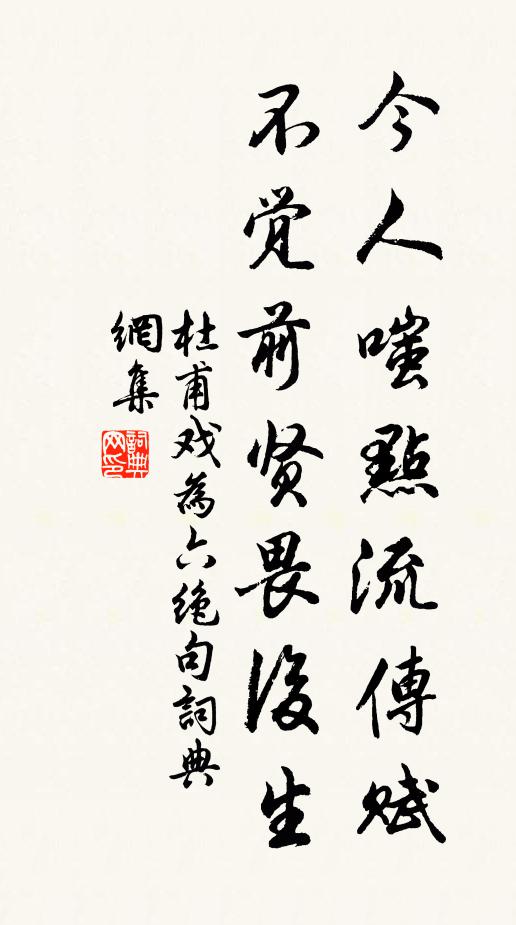 今人嗤點流傳賦
不觉前贤畏後生
杜甫戏為六绝句詞典
網集
詞典网印